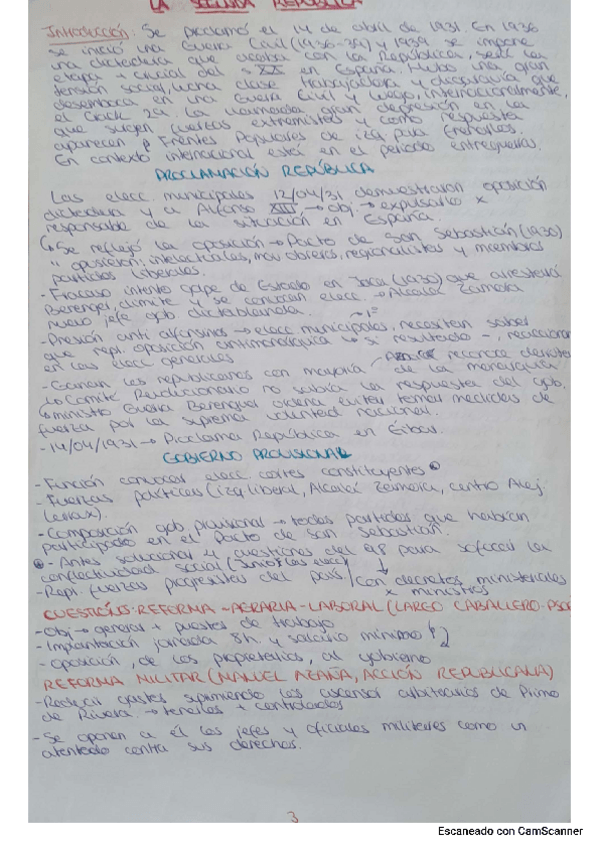 LA SEGUNDA REPÚBLICA
Introducción: Se proclamó el 14 de abril de 1931. En 1936
se inició una Guerra Civil (1936-39) y 1939 se impone
una dictadura que acaba con la República, será la
etapa + crucial del s XX en España. Hubo una gran
tensión social, lucha clase trabajadora y oligarquía que
desemboca en una Guerra Civil y luego, internacionalmente,
el Crack 29. La llamada gran depresión en la
que surgen fuerzas extremistas y como respuesta
aparecen Frentes Populares de izq para frenarlas.
En contexto internacional está en el período entreguerras.
PROCLAMACIÓN REPÚBLICA
Las elecc. municipales 12/04/31 demuestran oposición
dictadura y a Alfonso XIII → obj → expulsarlo x
responsable de la situación en España.
Se reflejó la oposición → Pacto de San Sebastián (1930)
" oposición: intelectuales, mov obreros, regionalistas y miembros
partidos liberales.
- Fracaso intento golpe de Estado en Jaca (1930) que arrestará
Berenguer, dimite y se convocan elecc. → Alcalá Zamora
nuevo jefe gob dictablanda.
- Presión anti alfonsinos → elecc municipales, necesitan saber
que repr. oposición antimonárquica si resultado -, reaccionar
en las elecc generales
- Ganan los republicanos con mayoría reconoce derrota
de la monarquía
Comité Revolucionario no sabía la respuesta del gob.
ministro Guerra Berenguer ordena evitar tomar medidas de
fuerza por la suprema voluntad nacional.
- 14/04/1931 → Proclama República en Éibar.
GOBIERNO PROVISIONAL
- Función convocar elecc. cortes constituyentes
- Fuerzas políticas (izq liberal, Alcalá Zamora, centro Alej.
Lerroux).
- Composición gob. provisional → todos partidos que habían
participado en el Pacto de San Sebastián.
- Antes solucionar 4 cuestiones del 98 para sofocar la
conflictividad social (Junio las elecc)
- Repr. fuerzas progresistas del país. Con decretos ministeriales
x ministros
CUESTIONS: REFORMA - AGRARIA - LABORAL (LARGO CABALLERO·PSOE
- Obj → generar + puestos de trabajo
- Implantación jornada 8h y salario mínimo
- oposición, de los propietarios, al gobierno
REFORMA MILITAR (MANUEL AZAÑA, ACCIÓN REPUBLICANA)
- Reducir gastos suprimiendo los ascensos arbitrarios de Primo
de Rivera → tenerlos + controlados
- Se oponen a él los jefes y oficiales militares como un
atentado contra sus derechos.
3
Escaneado con CamScanner